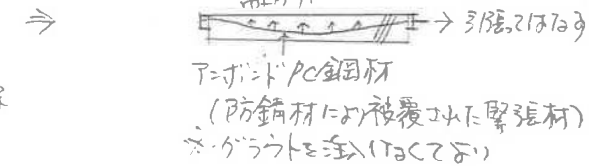 ⇒ → 引張ってはなす
アンボンドPC鋼材
(防錆材により被覆された緊張材)
※グラウトを注入しなくてよい